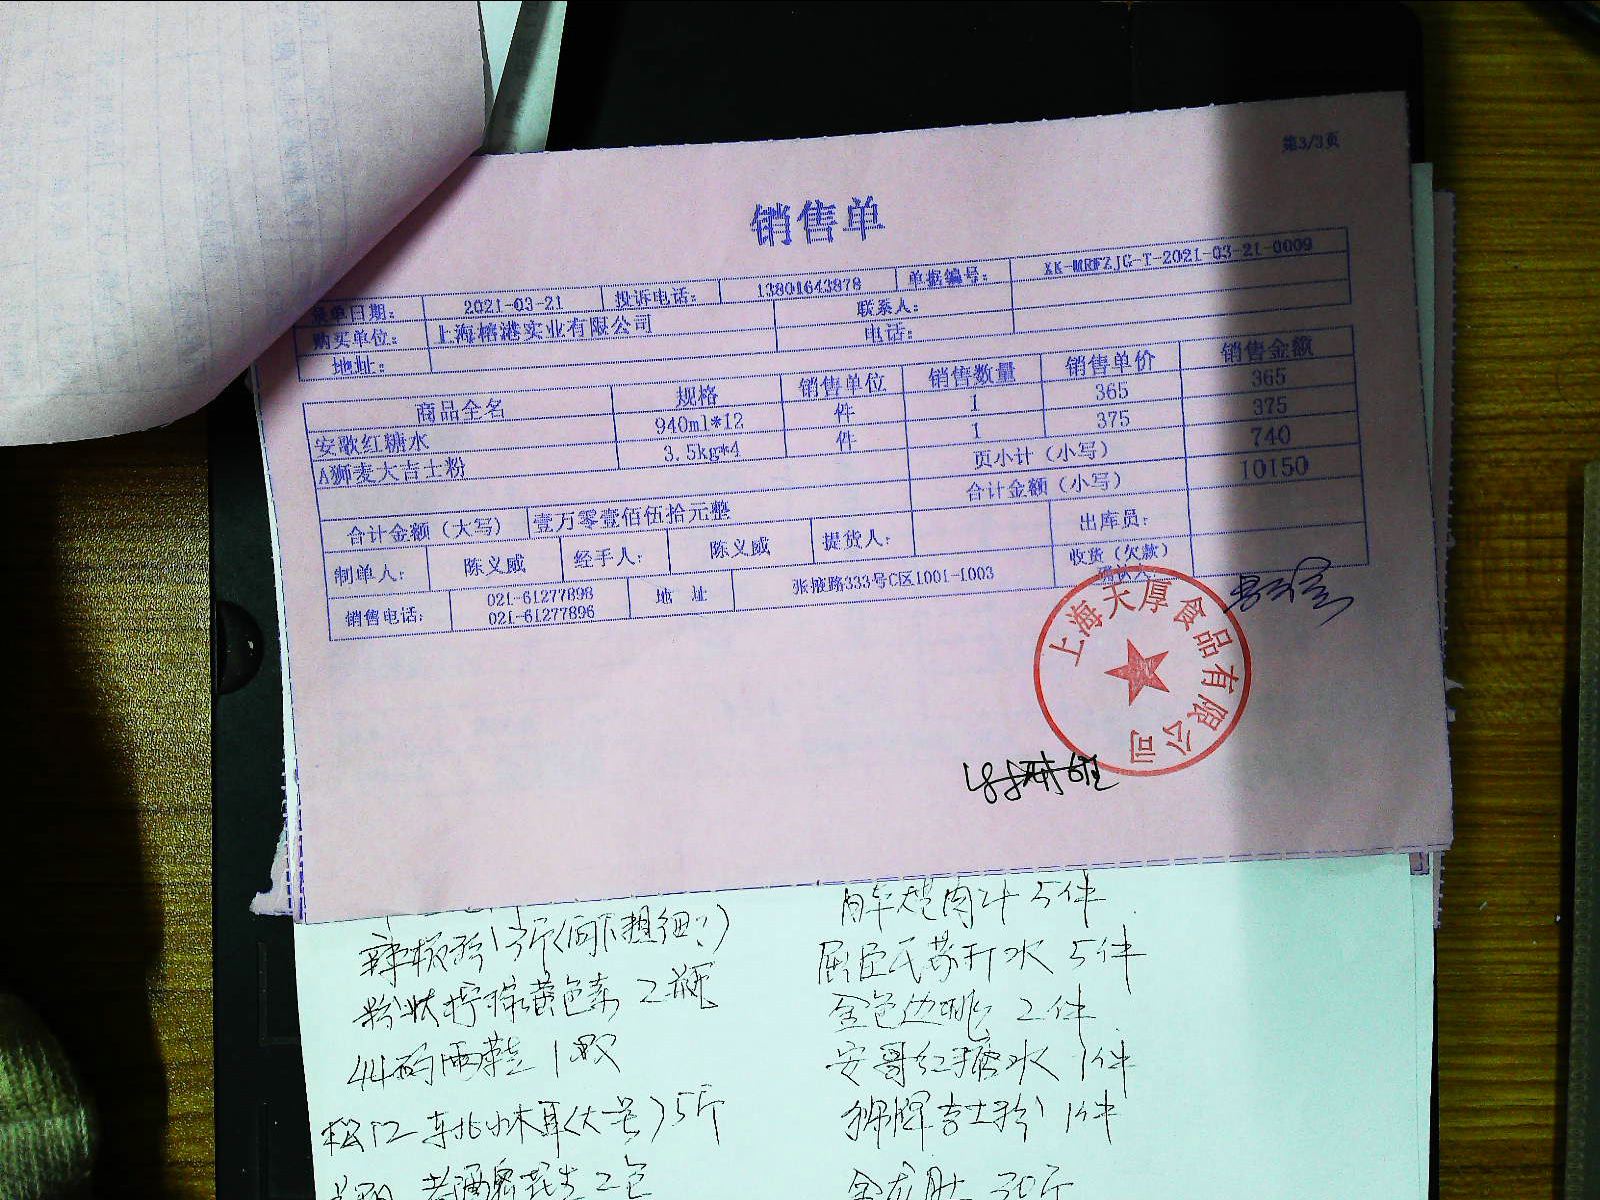 第3/3页
销售单
录单日期： 2021-03-21 投诉电话： 13801643878 单据编号： XK-MRFZJG-T-2021-03-21-0009
购买单位： 上海榕港实业有限公司 联系人：
地址： 电话：
商品全名 规格 销售单位 销售数量 销售单价 销售金额
安歌红糖水 940ml*12 件 1 365 365
A狮麦大吉士粉 3.5kg*4 件 1 375 375
页小计（小写） 740
合计金额（大写） 壹万零壹佰伍拾元整 合计金额（小写） 10150
制单人： 陈义威 经手人： 陈义威 提货人： 出库员：
销售电话： 021-61277898 021-61277896 地 址 张掖路333号C区1001-1003 收货（欠款）确认人
上海天厚食品有限公司
5件
屈臣氏苏打水 5件
粉状柠檬黄色素 2瓶
金色边桃 2件
44码雨鞋 1双
安哥红糖水 1件
松江 东北小木耳(大包)5斤
狮牌吉士粉 1件
老酒鬼花生2包
30斤